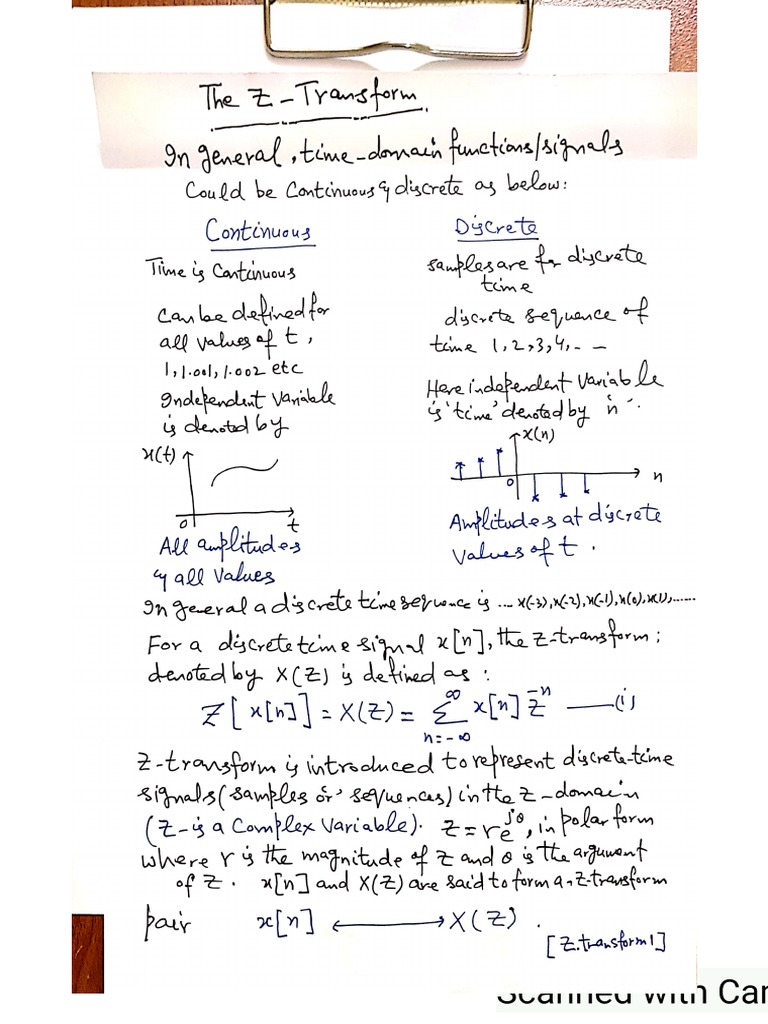 The Z-Transform
In general, time-domain functions/signals
Could be Continuous & discrete as below:
Continuous
Time is Continuous
Can be defined for
all values of t,
1, 1.001, 1.002 etc
Independent Variable
is denoted by
x(t)
0
t
All amplitudes
& all Values
Discrete
samples are for discrete
time
discrete sequence of
time 1,2,3,4,- -
Here independent Variable
is 'time' denoted by 'n'.
x(n)
0
n
Amplitudes at discrete
Values of t.
In general a discrete time sequence is ... x(-3), x(-2), x(-1), x(0), x(1), ......
For a discrete time signal x[n], the Z-transform;
denoted by X(Z) is defined as:
Z[x[n]] = X(Z) = ∑_{n=-∞}^{∞} x[n] Z^{-n} —(i)
Z-transform is introduced to represent discrete-time
signals (samples or sequences) in the Z-domain
(Z-is a Complex Variable). Z = re^{jθ}, in polar form
where r is the magnitude of Z and θ is the argument
of Z. x[n] and X(Z) are said to form a Z-transform
pair x[n] ⟷ X(Z).
[Z.transform1]
Scanned with Car